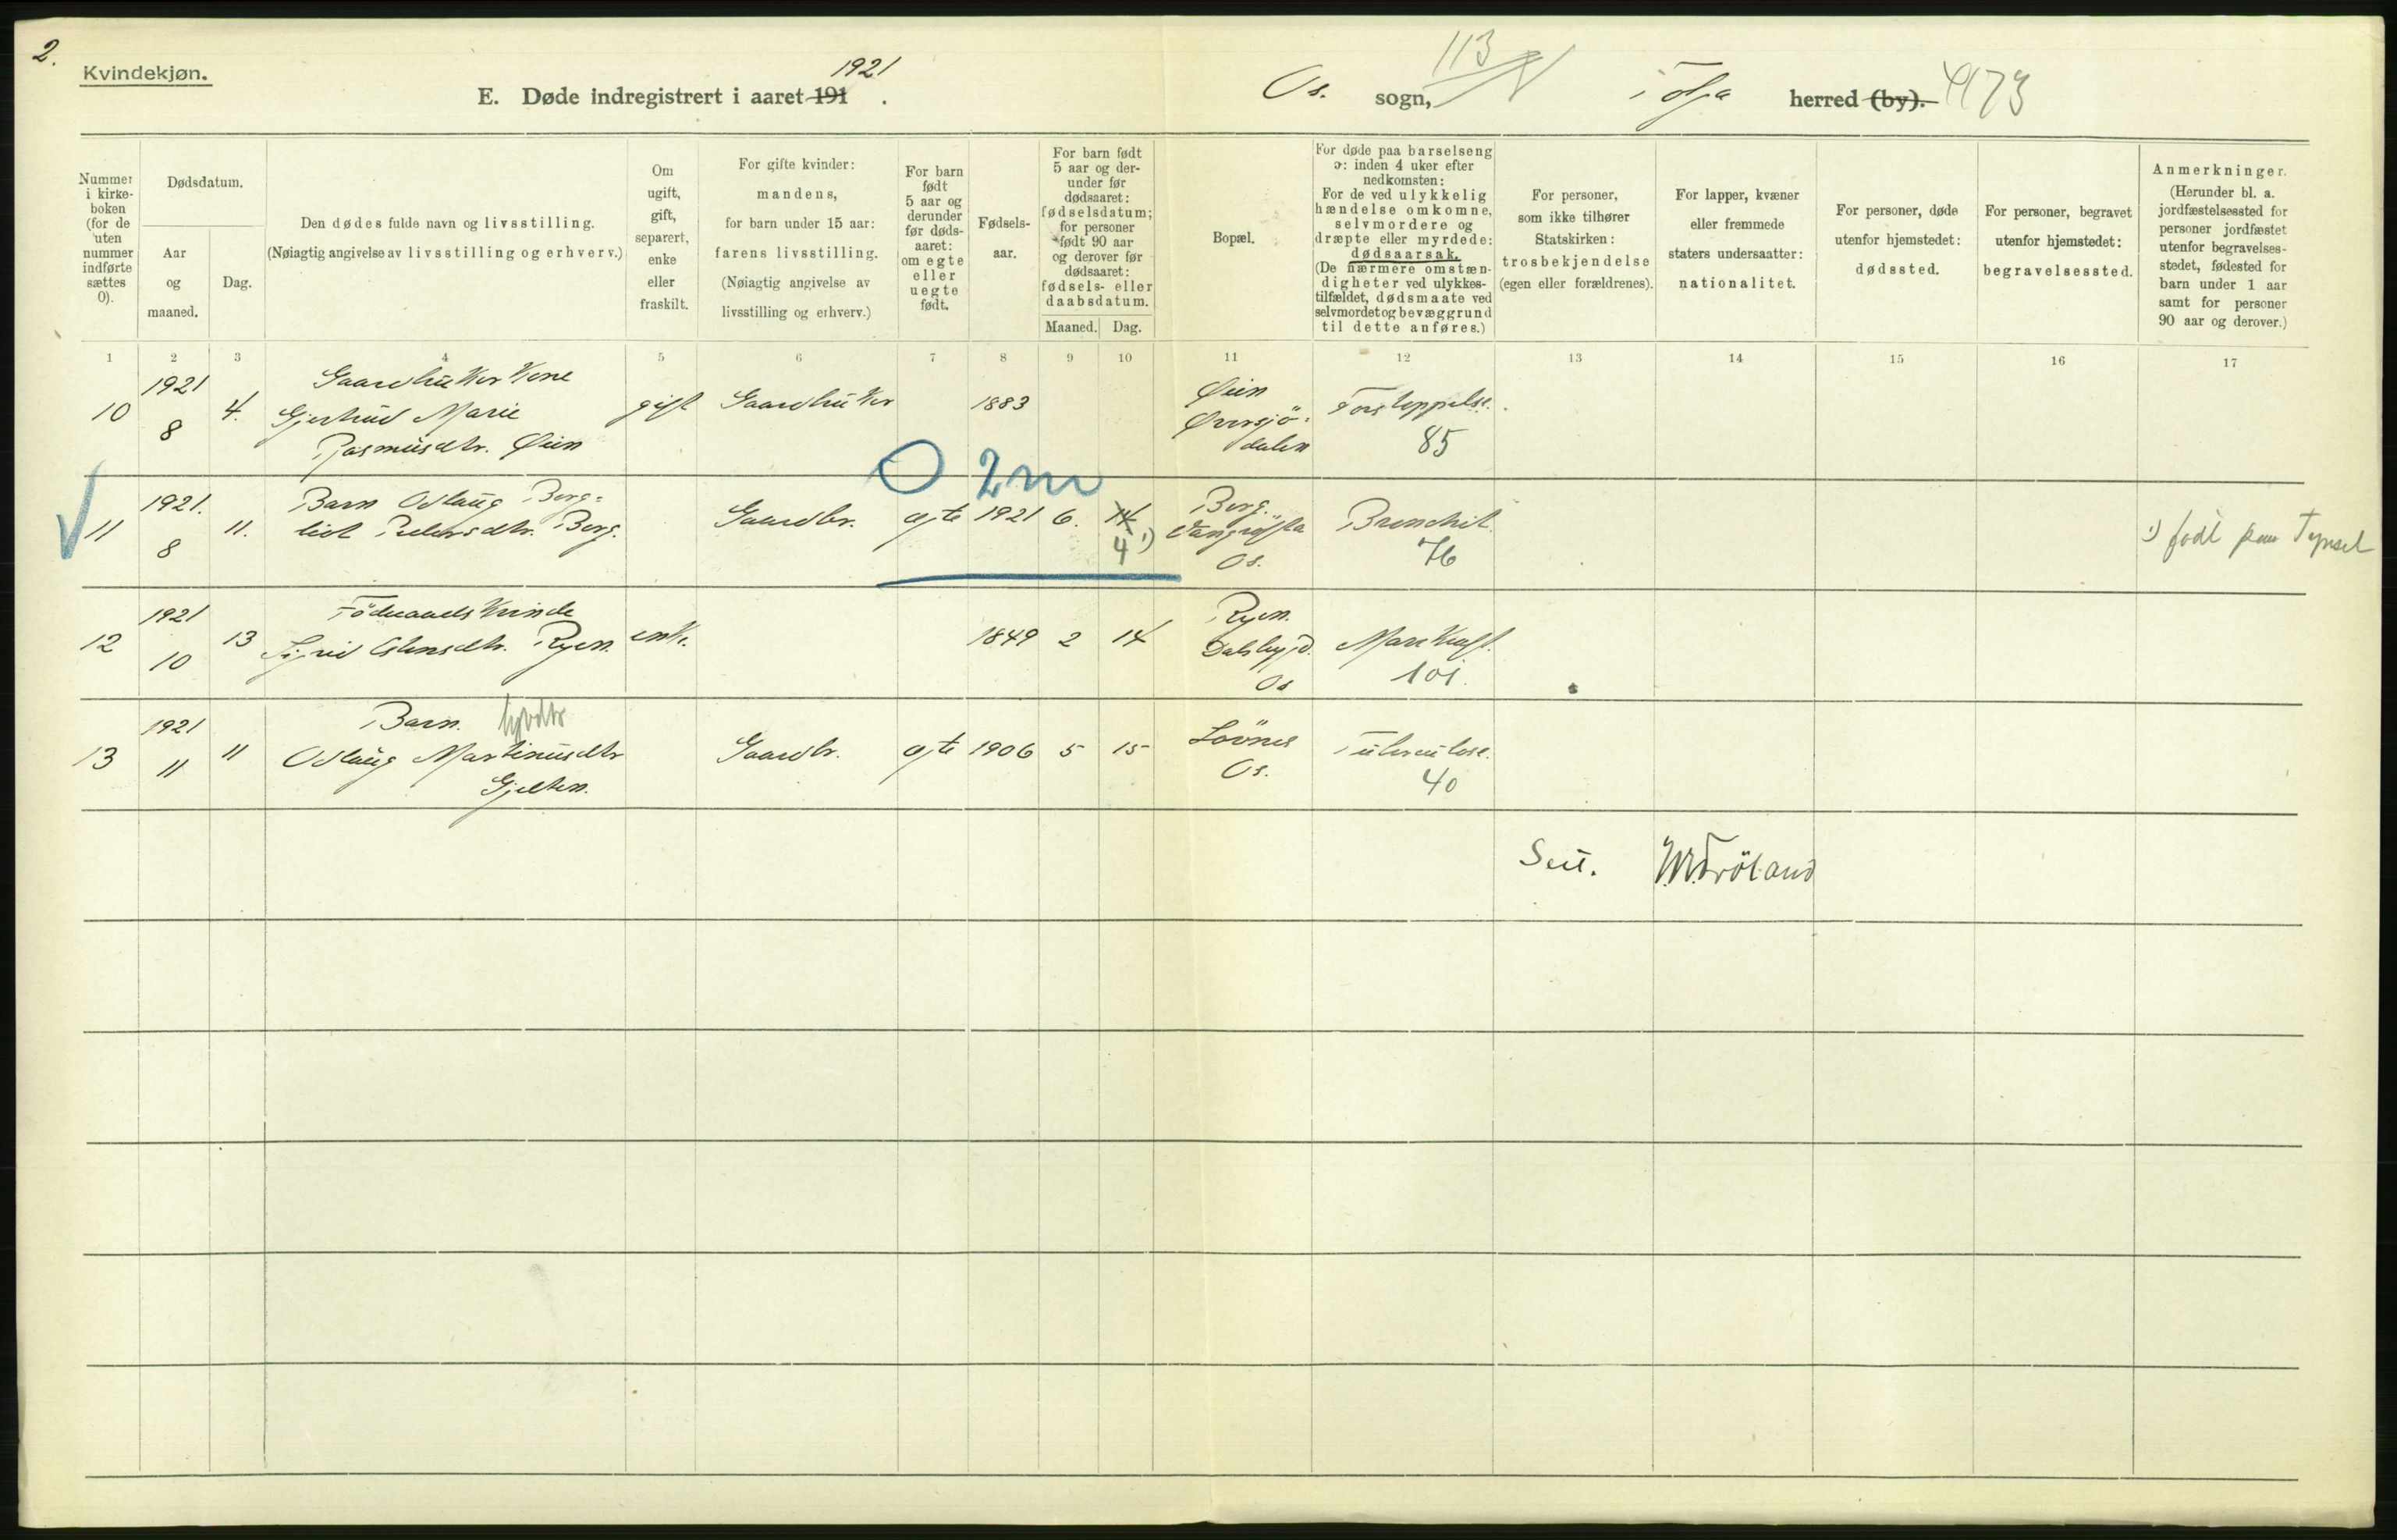 2.
Kvindekjøn.
E. Døde indregistrert i aaret 191 .
1921
Os. sogn, 113 Tolga herred (by). 4173
Nummer i kirke-boken (for de uten nummer indførte sættes 0).
Dødsdatum.
Aar og maaned.
Dag.
Den dødes fulde navn og livsstilling.
(Nøiagtig angivelse av livsstilling og erhverv.)
Om ugift, gift, separert, enke eller fraskilt.
For gifte kvinder: mandens, for barn under 15 aar: farens livsstilling. (Nøiagtig angivelse av livsstilling og erhverv.)
For barn født 5 aar og derunder før døds-aaret: om egte eller uegte født.
Fødsels-aar.
For barn født 5 aar og der-under før dødsaaret: fødselsdatum; for personer født 90 aar og derover før dødsaaret: fødsels- eller daabsdatum.
Maaned. Dag.
Bopæl.
For døde paa barselseng ɔ: inden 4 uker efter nedkomsten: For de ved ulykkelig hændelse omkomne, selvmordere og dræpte eller myrdede: dødsaarsak. (De nærmere omstæn-digheter ved ulykkes-tilfældet, dødsmaate ved selvmordet og bevæggrund til dette anføres.)
For personer, som ikke tilhører Statskirken: trosbekjendelse (egen eller forældrenes).
For lapper, kvæner eller fremmede staters undersaatter: nationalitet.
For personer, døde utenfor hjemstedet: dødssted.
For personer, begravet utenfor hjemstedet: begravelsessted.
Anmerkninger. (Herunder bl. a. jordfæstelsessted for personer jordfæstet utenfor begravelses-stedet, fødested for barn under 1 aar samt for personer 90 aar og derover.)
1 2 3 4 5 6 7 8 9 10 11 12 13 14 15 16 17
1921 Gaardbruker Kone Øien
10 8 4. Gjertrud Marie gift Gaardbruker 1883 Øversjö- Forstoppelse.
Rasmusdtr. Øien dalen 85
O 2m
1921. Barn Oslaug Berg- Berg.
11 8 11. liot Pedersdtr. Berg. Gaardbr. egte 1921 6. 14 Vangröfta Bronchit.
4 1) Os. 76
1) født paa Tynset
1921 Föderaadskvinde Ryen.
12 10 13 Sigrid Estensdtr. Ryen. enke. 1849 2 14 Dalsbygd. Marekraft.
Os 101.
1921 Barn. Lövnes
13 11 11 Oslaug Martinusdtr Gaardbr. egte 1906 5 15 Os. Tuberculose.
Gjelten. 40